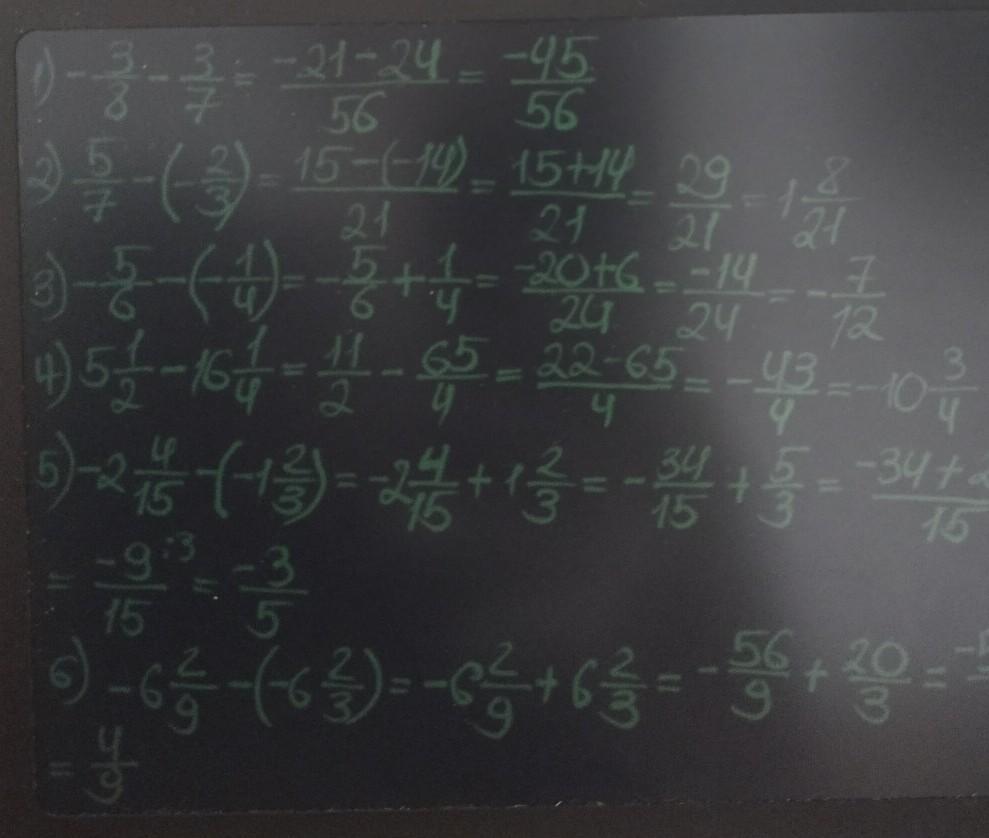 1) -3/8 - 3/7 = -21-24/56 = -45/56
2) 5/7 - (-2/3) = 15-(-14)/21 = 15+14/21 = 29/21 = 1 8/21
3) -5/6 - (-1/4) = -5/6 + 1/4 = -20+6/24 = -14/24 = -7/12
4) 5 1/2 - 16 1/4 = 11/2 - 65/4 = 22-65/4 = -43/4 = -10 3/4
5) -2 4/15 - (-1 2/3) = -2 4/15 + 1 2/3 = -34/15 + 5/3 = -34+2/15
= -9:3/15 = -3/5
6) -6 2/9 - (-6 2/3) = -6 2/9 + 6 2/3 = -56/9 + 20/3 =
= 4/9